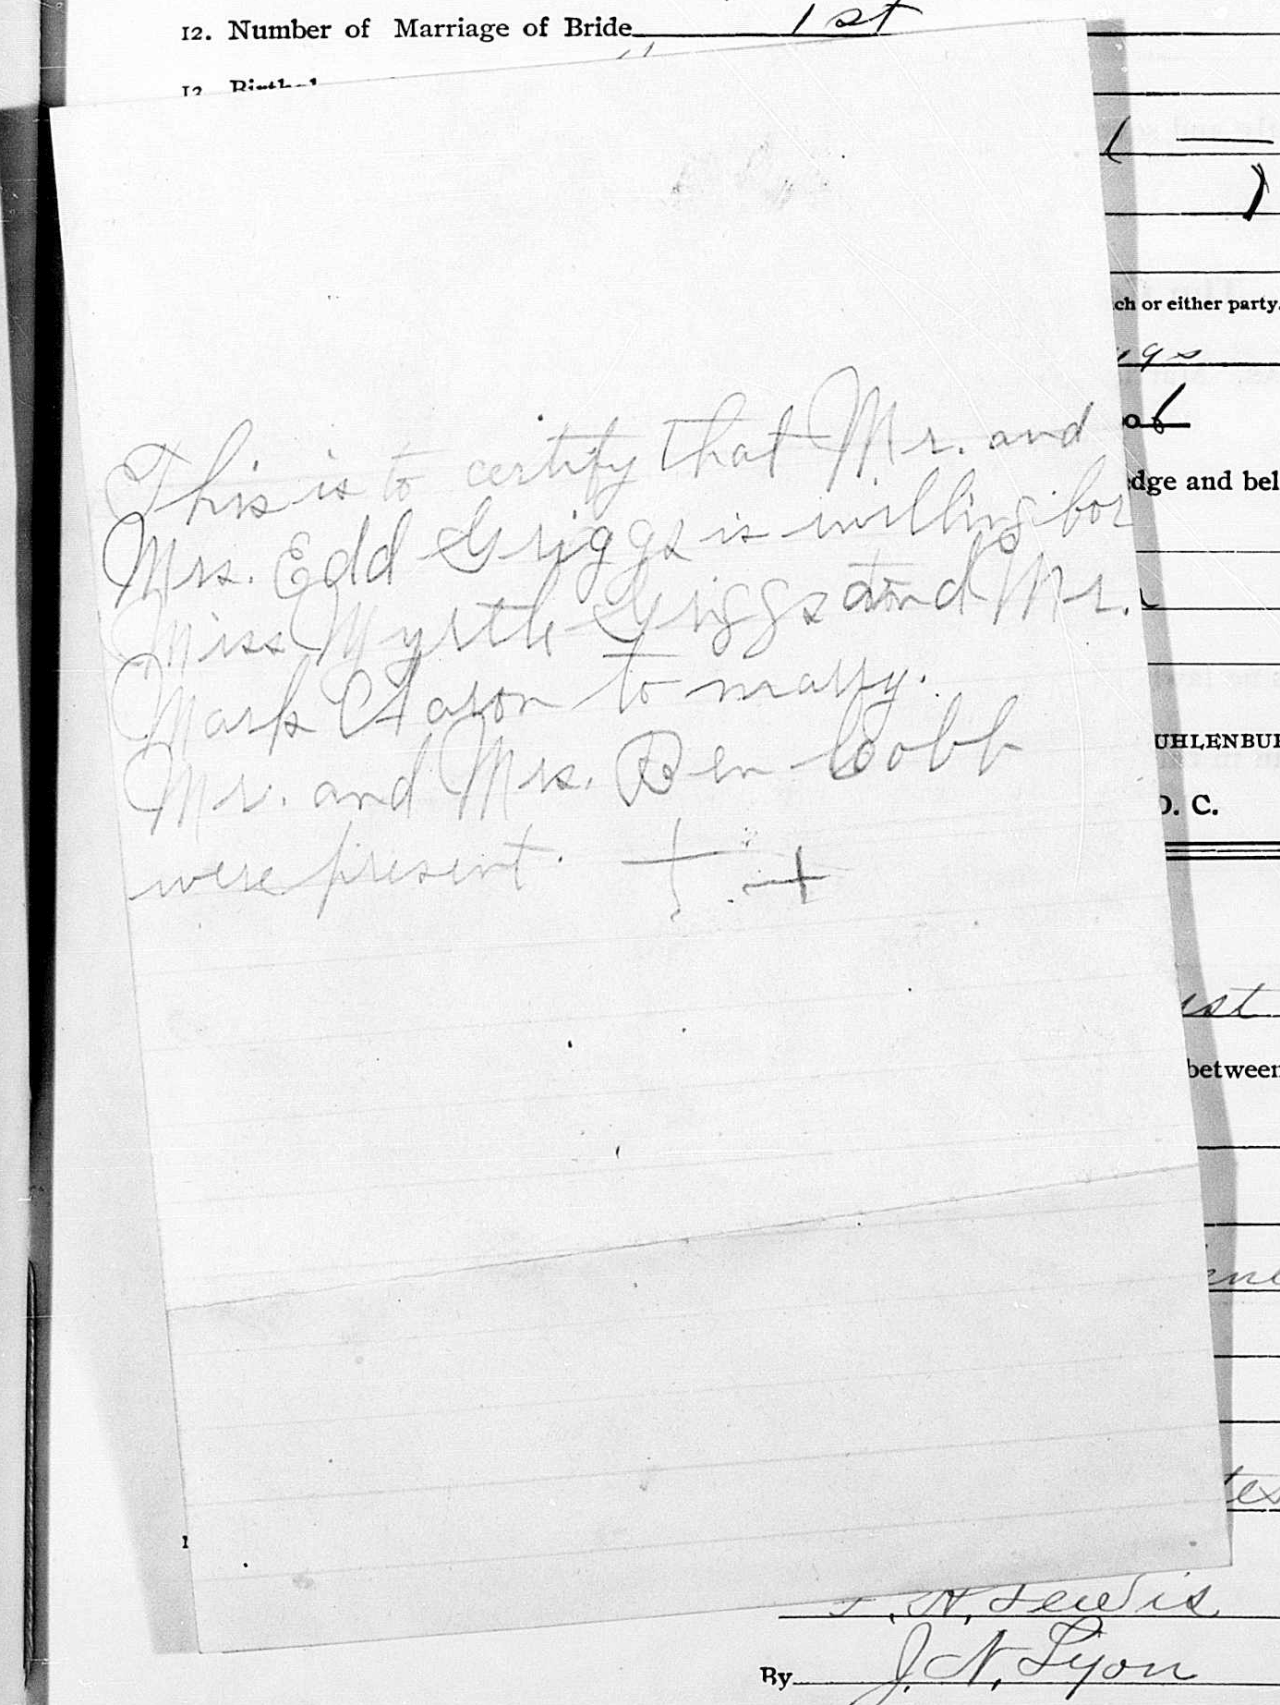 12. Number of Marriage of Bride 1st
This is to certify that Mr. and
Mrs. Edd Griggs is willing for
Miss Myrtle Griggs and Mr.
Mark Aaron to marry.
Mr. and Mrs. Ben Cobb
were present.
ch or either party.
edge and bel
UHLENBU
D. C.
between
Lewis
By J. N. Lyon